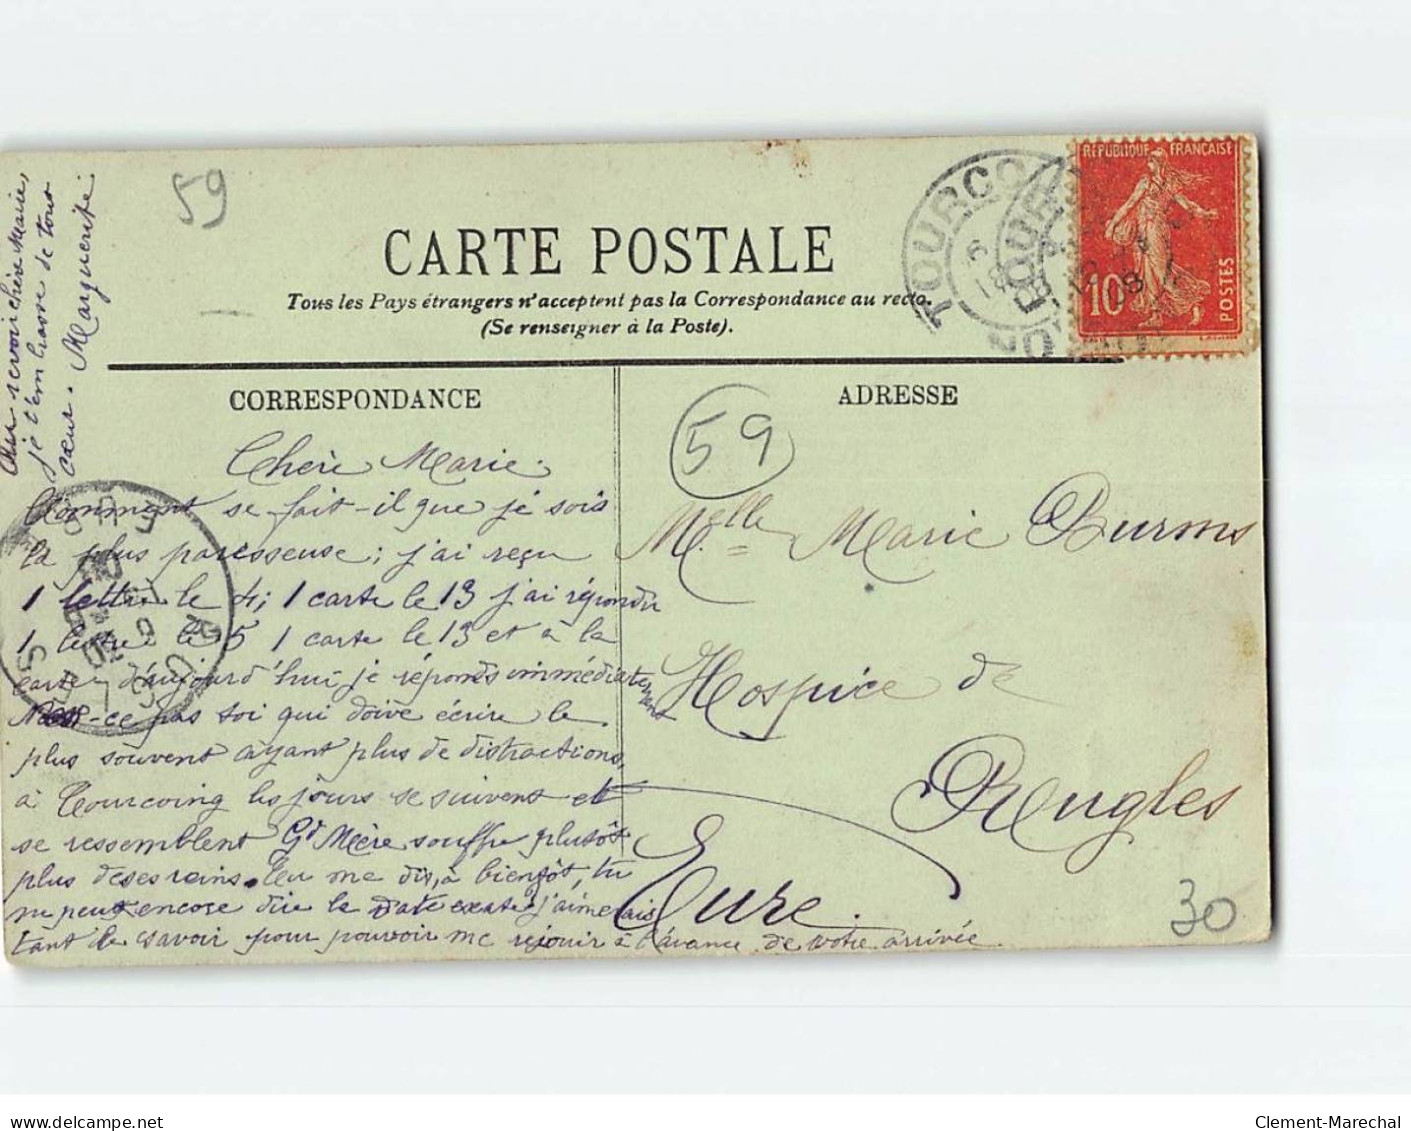 59
CARTE POSTALE
Tous les Pays étrangers n'acceptent pas la Correspondance au recto.
(Se renseigner à la Poste).
RÉPUBLIQUE FRANÇAISE
10
POSTES
TOURCOING
CORRESPONDANCE
ADRESSE
59
Chère Marie.
Comment se fait-il que je sois
la plus paresseuse; j'ai reçu
1 lettre le 4; 1 carte le 13 j'ai répondu
1 lettre le 5 1 carte le 13 et à la
carte d'aujourd'hui je réponds immédiatement
N'est-ce pas toi qui doive écrire le
plus souvent ayant plus de distractions,
à Tourcoing les jours se suivent et
se ressemblent Gd Mère souffre plutôt
plus de ses reins. Tu me dis, à bientôt, tu
ne peux encore dire la date exacte j'aimerais
tant le savoir pour pouvoir me réjouir à l'avance de votre arrivée.
Au revoir chère Marie,
je t'embrasse de tout
cœur. Marguerite.
Melle Marie Burms
Hospice de
Rugles
Eure.
30
delcampe.net
Clement-Marechal